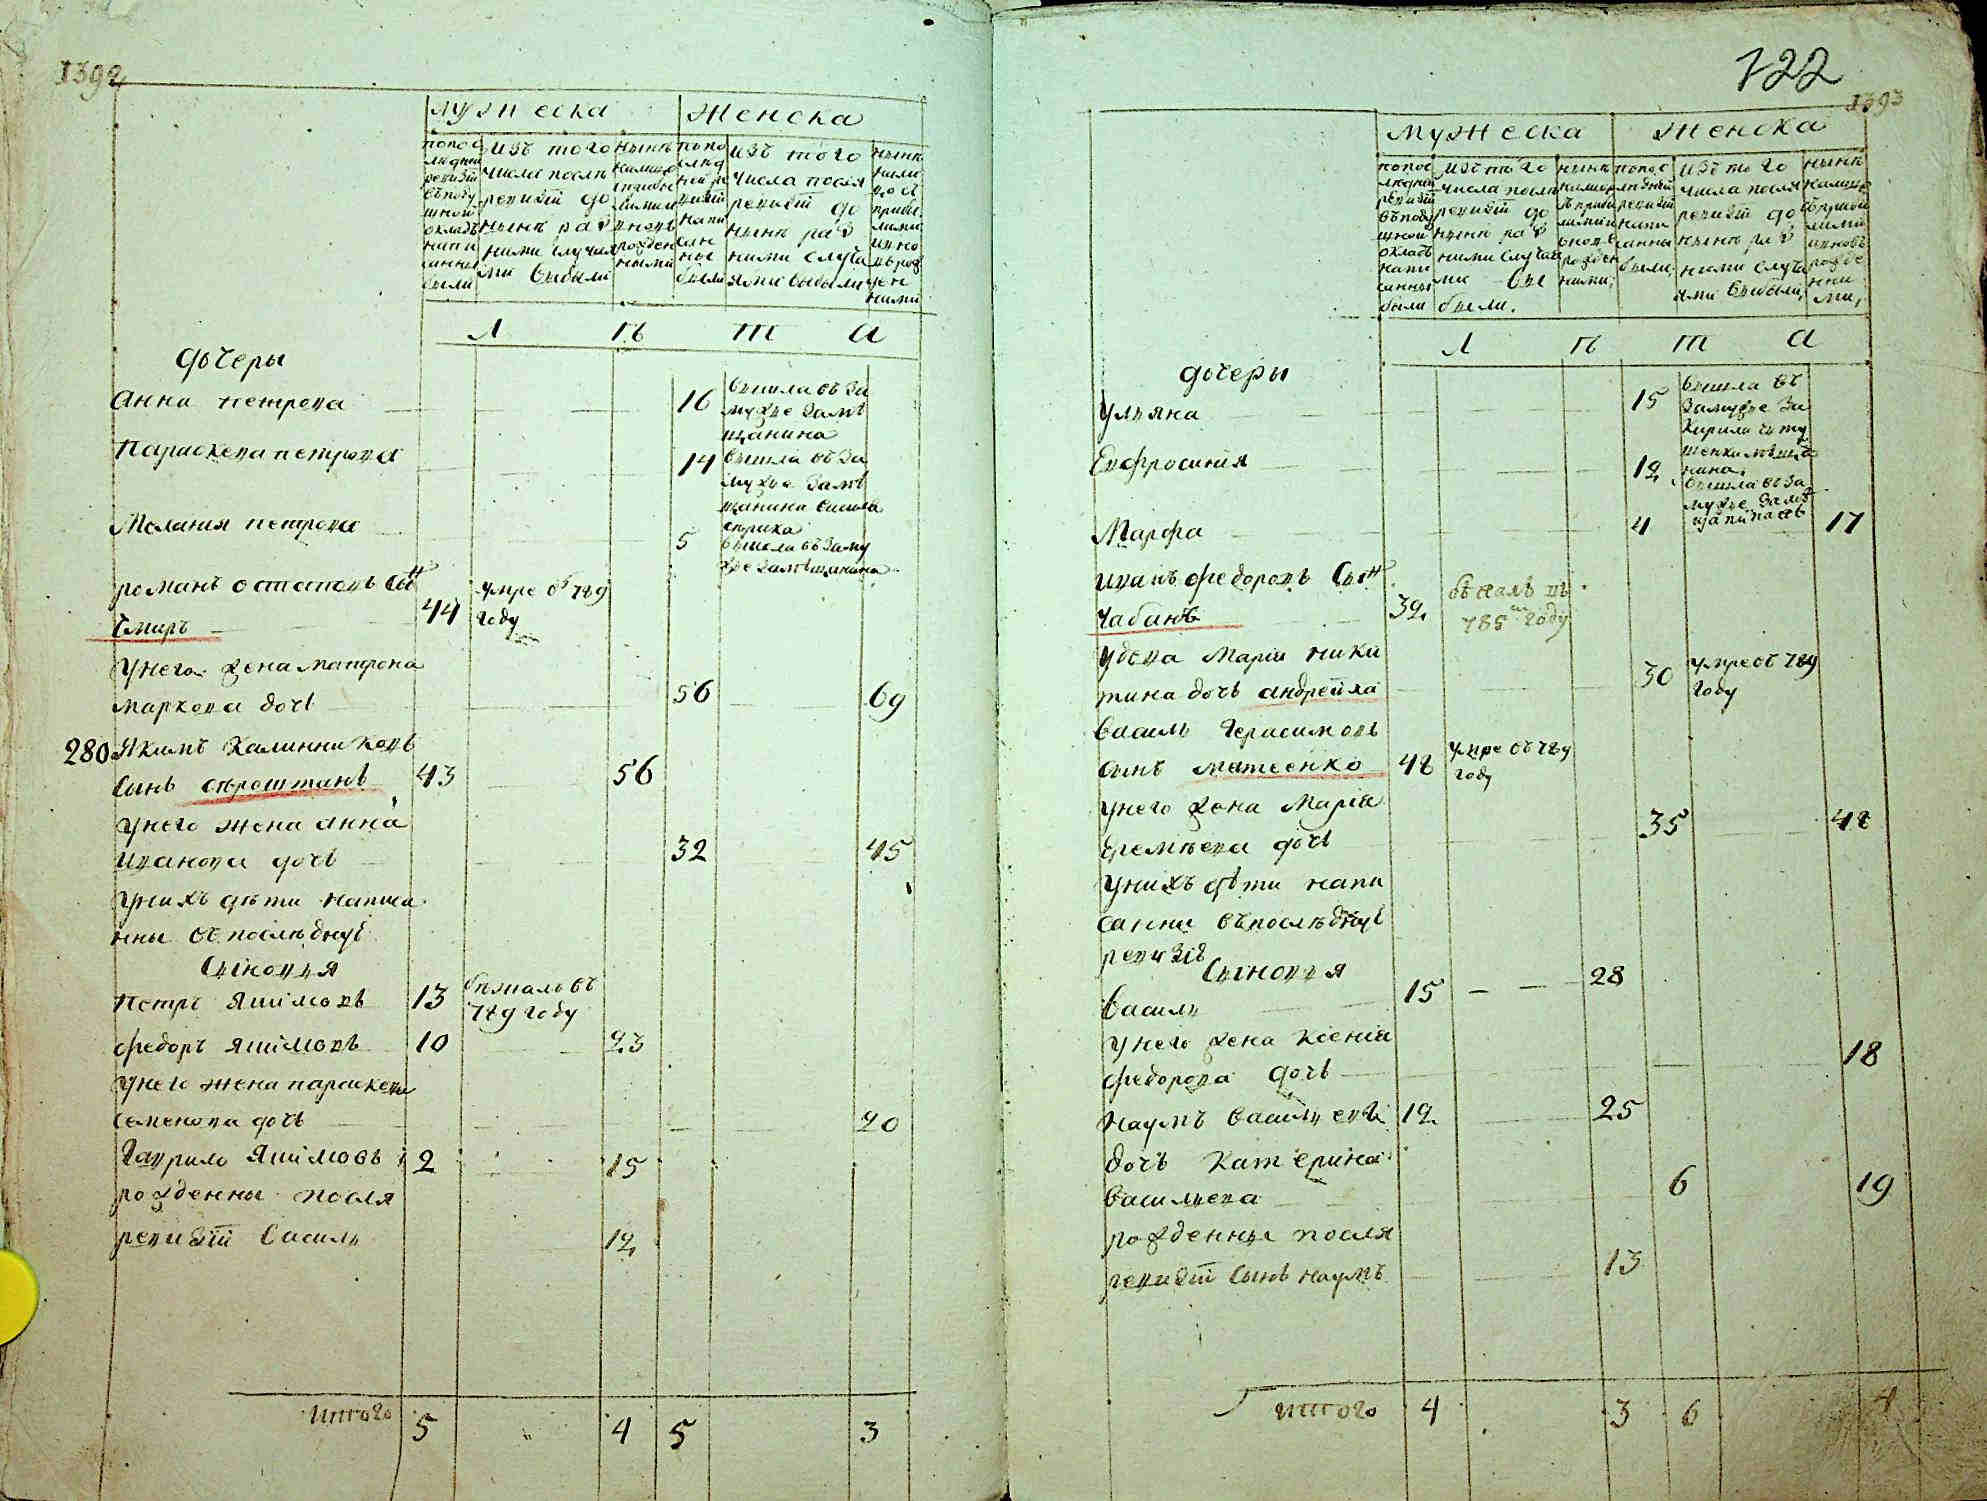 1392
мужеска
женска
попос
ледней
ревизiи
въподу
шной
окладъ
напи
санны
были
изъ того
числа посль
ревизiи до
нынъ раз
ними случая
ми выбыли
нынъ
налицо
рожден
ными
изъ того
числа посля
ревизiи до
нынъ раз
ними случа
ями выбыли
нынъ
ными
л ѣ т а
дочеры
анна петрова
16
вышла въ за
мужъе замѣ
щанина
параскева петрова
14
вышла въ за
мужъе замѣ
щанина
мелания петрова
5
вышла въ заму
жъе замѣщанина
романъ остаповъ сынъ
44
умре въ 789
году
чмиръ
унего жена матрона
маркова дочь
56
69
280
Якимъ калинниковъ
сынъ сѣроштанъ
43
56
унего жена анна
иванова дочь
32
45
унихъ дѣти написа
нны въ послѣднуѣ
сыновья
петръ якимовъ
13
бѣжалъ въ
789 году
федоръ якимовъ
10
23
унего жена параскева
семенова дочь
20
гаврило якимовъ
2
15
рожденны посля
ревизiи василь
12
итого
5
4
5
3
122
1393
мужеска
женска
попос
ледней
ревизiи
въподу
шной
окладъ
напи
санны
были
изъ того
числа посль
ревизiи до
нынъ раз
ними случая
ми вы
были.
нынъ
рожден
ными,
попос
лѣдней
ревизiи
напи
санны
были,
изъ того
числа посля
ревизiи до
нынъ раз
ними случа
ями выбыли,
нынъ
налицо
съприбы
лыми
вновь
рожде
нны
ми,
л ѣ т а
дочеры
ульяна
15
вышла въ
замужъе за
кирила
Евфросинiя
12
вышла въ за
мужъе замѣ
щанина
Марфа
4
17
иванъ федоровъ сынъ
чабанъ
32
бѣжалъ въ
785 году
удова Марiя ники
тина дочь андреиха
30
умре въ 789
году
василь герасимовъ
сынъ матсенко
48
умре въ 789
году
унего жена Марiя
еремѣева дочь
35
48
унихъ дѣти напи
санни въпослѣднуѣ
ревизiѣ
сыновья
василь
15
28
унего жена ксенiя
федорова дочь
18
наумъ васильевъ
12
25
дочь катерина
васильева
6
19
рожденны посля
ревизiи сынъ наумъ
13
итого
4
3
6
4